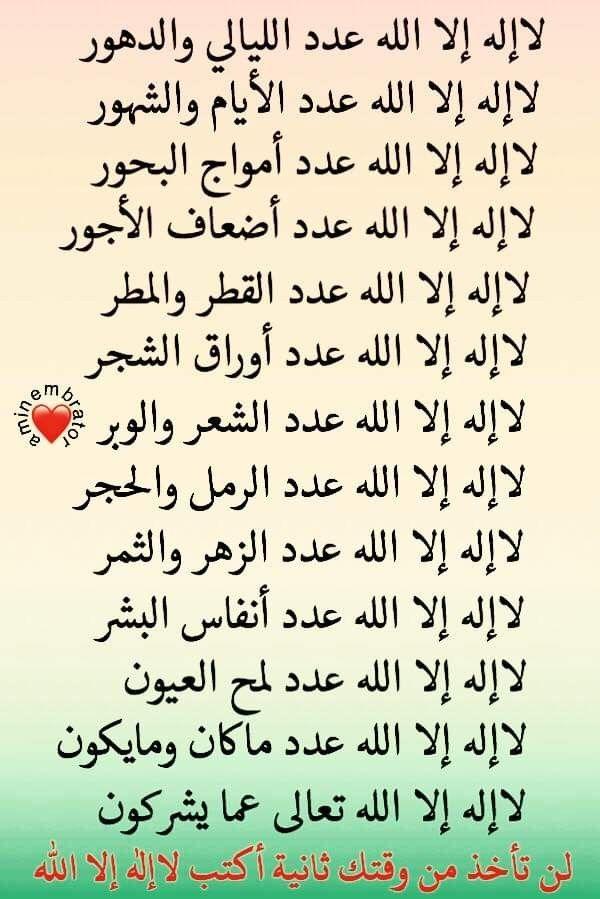 لاإله إلا الله عدد الليالي والدهور
لاإله إلا الله عدد الأيام والشهور
لاإله إلا الله عدد أمواج البحور
لاإله إلا الله عدد أضعاف الأجور
لاإله إلا الله عدد القطر والمطر
لاإله إلا الله عدد أوراق الشجر
لاإله إلا الله عدد الشعر والوبر
aminembrator
لاإله إلا الله عدد الرمل والحجر
لاإله إلا الله عدد الزهر والثمر
لاإله إلا الله عدد أنفاس البشر
لاإله إلا الله عدد لمح العيون
لاإله إلا الله عدد ماكان ومايكون
لاإله إلا الله تعالى عما يشركون
لن تأخذ من وقتك ثانية أكتب لاإله إلا الله